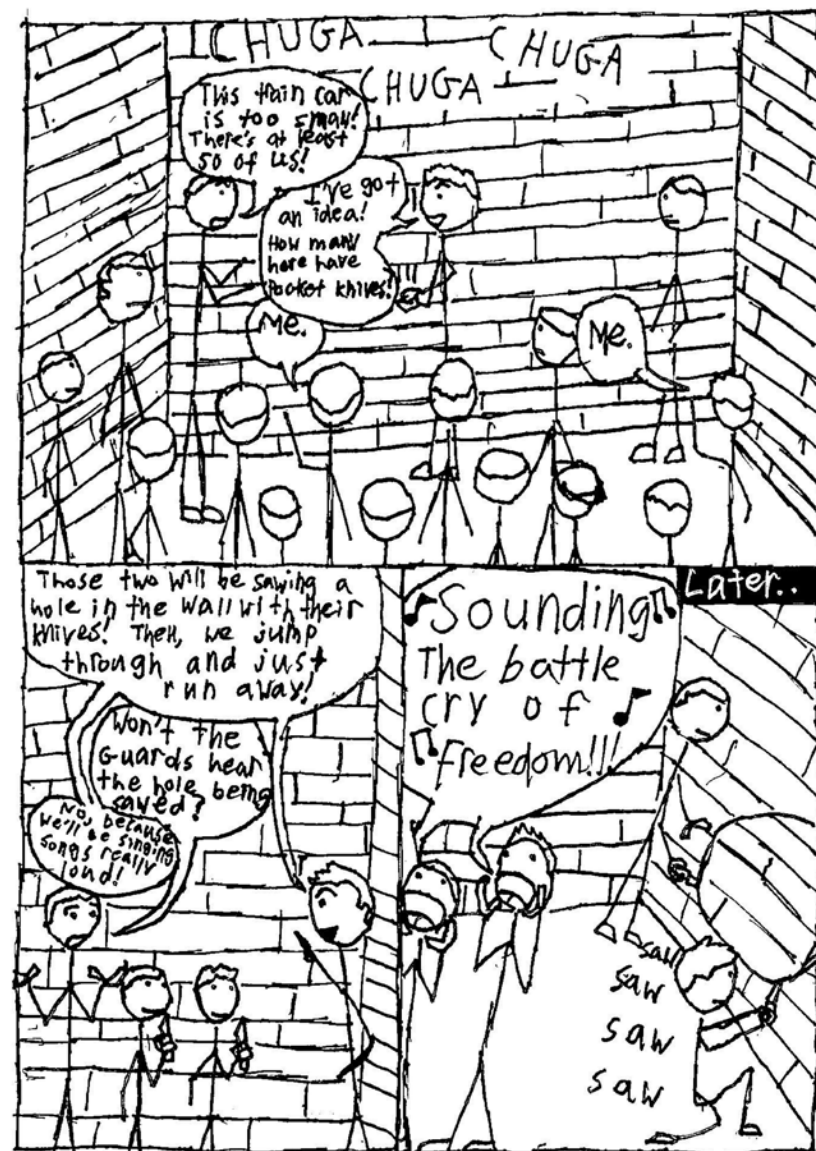 CHUGA
CHUGA
CHUGA
This train car
is too small!
There's at least
50 of us!
I've got
an idea!
How many
here have
pocket knives!
Me.
Me.
Those two will be sawing a
hole in the wall with their
knives! Then, we jump
through and just
run away!
Won't the
guards hear
the hole being
sawed?
No, because
we'll be singing
songs really
loud!
Later..
Sounding
The battle
cry of
freedom!!!
saw
saw
saw
saw